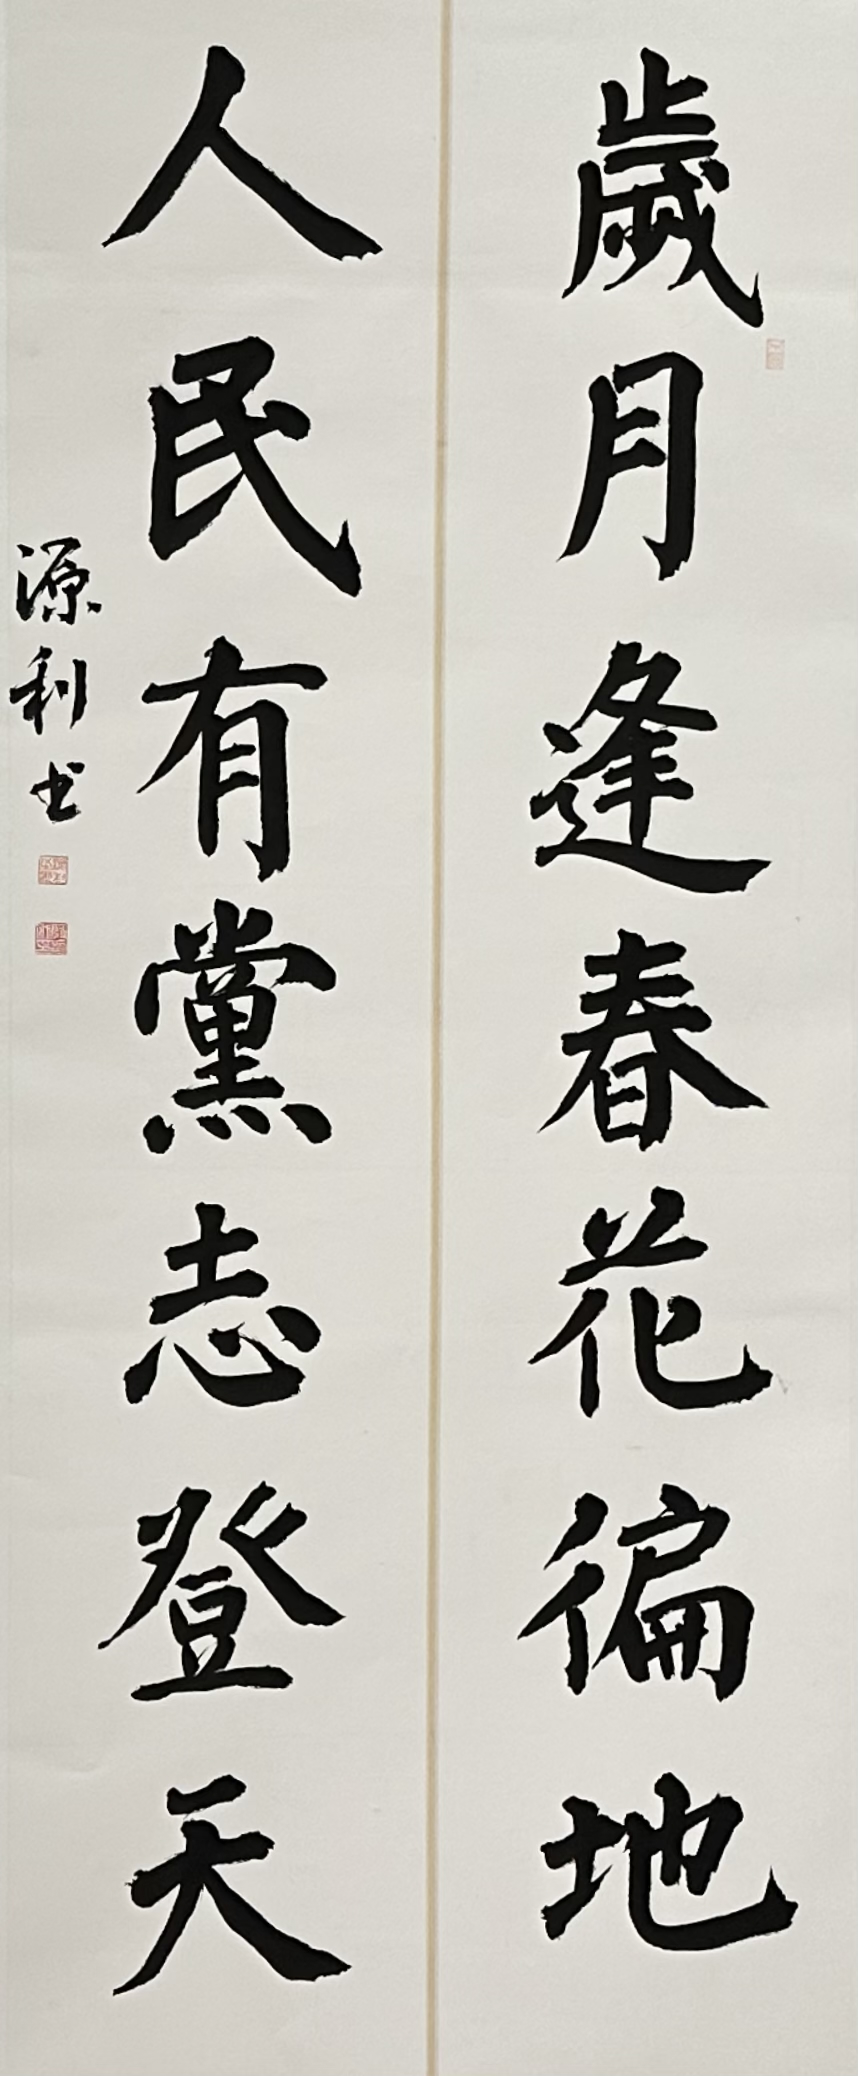 歲月逢春花徧地
人民有黨志登天
源利书